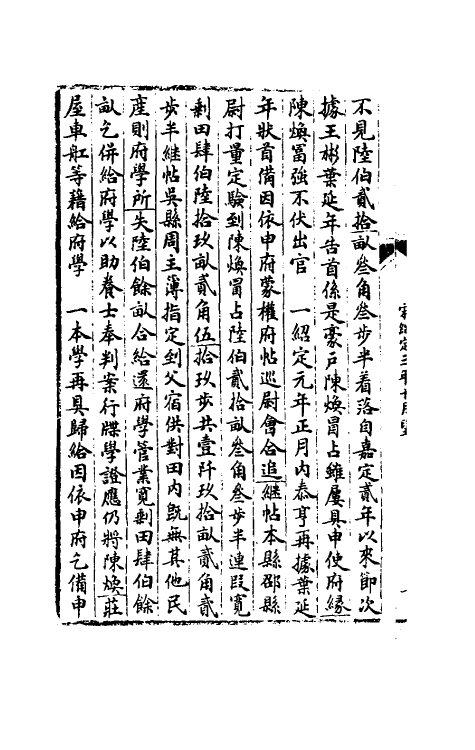 不見陸伯貳拾畝叁角叁步半着落自嘉定貳年以來節次
據王彬葉延年告首係是豪戶陳煥冒占雖屢具申使府緣
陳煥冨強不伏出官　一紹定元年正月内泰亨再據葉延
年狀首備因依申府蒙權府帖巡尉會合追繼帖本縣邵縣
尉打量定驗到陳煥冒占陸伯貳拾畝叁角叁步半連叚寛
剩田肆伯陸拾玖畝貳角伍拾玖步共壹阡玖拾畝貳角貳
步半繼帖吳縣周主簿指定到父宿供對田内旣無其他民
産則府學所失陸伯餘畝合給還府學管業寛剩田肆伯餘
畝乞併給府學以助養士奉判案行牒學證應仍將陳煥莊
屋車舡等藉給府學　一本學再具歸給因依申府乞備申